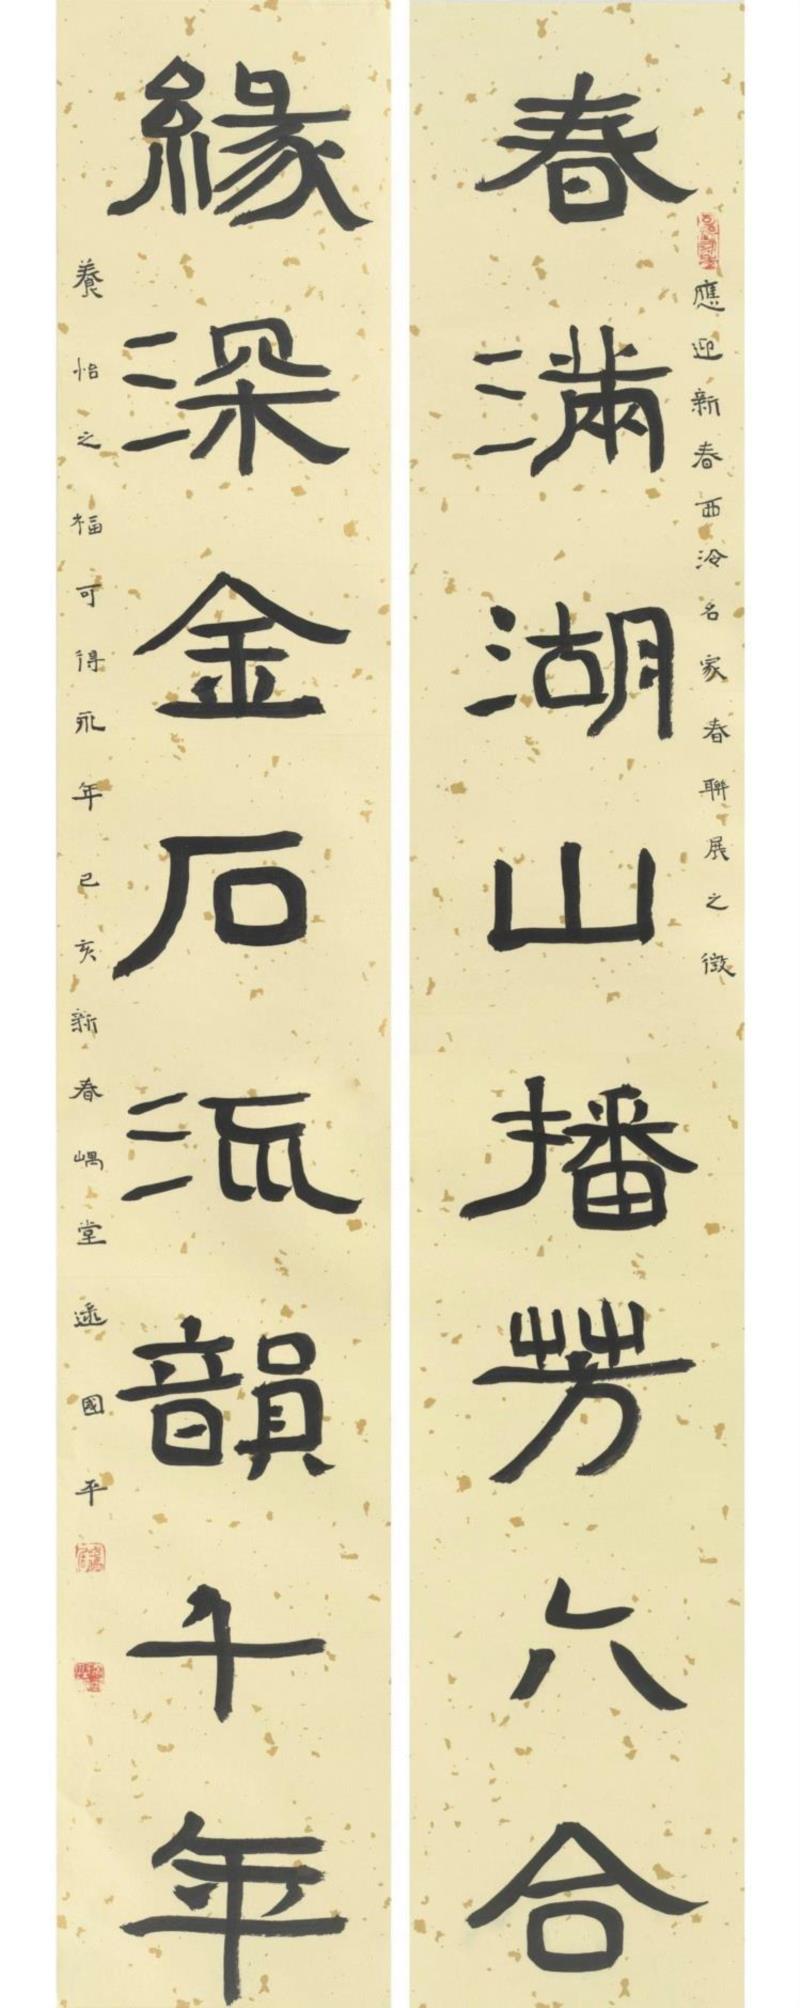 春滿湖山播芳六合
應迎新春西泠名家春聯展之徵
緣深金石流韻千年
養怡之福可得永年己亥新春嵎堂遥國平